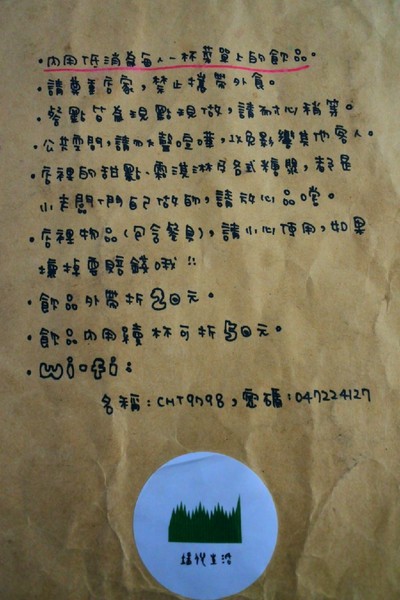 ·內用低消為每人一杯菜單上的飲品。
·請尊重店家，禁止攜帶外食。
·餐點皆為現點現做，請耐心稍等。
·公共空間，請勿大聲喧嘩，以免影響其他客人。
·店裡的甜點、霜淇淋及各式糖漿，都是
小老闆們自己做的，請放心品嚐。
·店裡物品(包含餐具)，請小心使用，如果
壞掉要賠錢哦!!
·飲品外帶折20元。
·飲品內用續杯可折50元。
·wi-fi：
名稱：CHT9798，密碼：047224127
生活